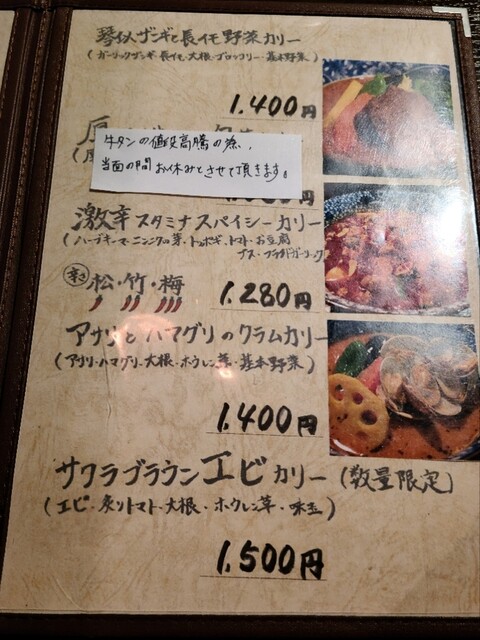 琴似ザンギと長イモ野菜カリー
(ガーリックザンギ・長イモ・大根・ブロッコリー・基本野菜)
1.400円
牛タンの値段高騰の為、
当面の間お休みとさせて頂きます。
激辛スタミナスパイシーカリー
(ハーブキーマ・ニンニクの芽・トッポギ・トマト・お豆腐
ナス・フライドガーリック)
辛さ 松・竹・梅
1.280円
アサリとハマグリのクラムカリー
(アサリ・ハマグリ・大根・ホウレン草・基本野菜)
1.400円
サクラブラウンエビカリー (数量限定)
(エビ・炙りトマト・大根・ホウレン草・味玉)
1.500円